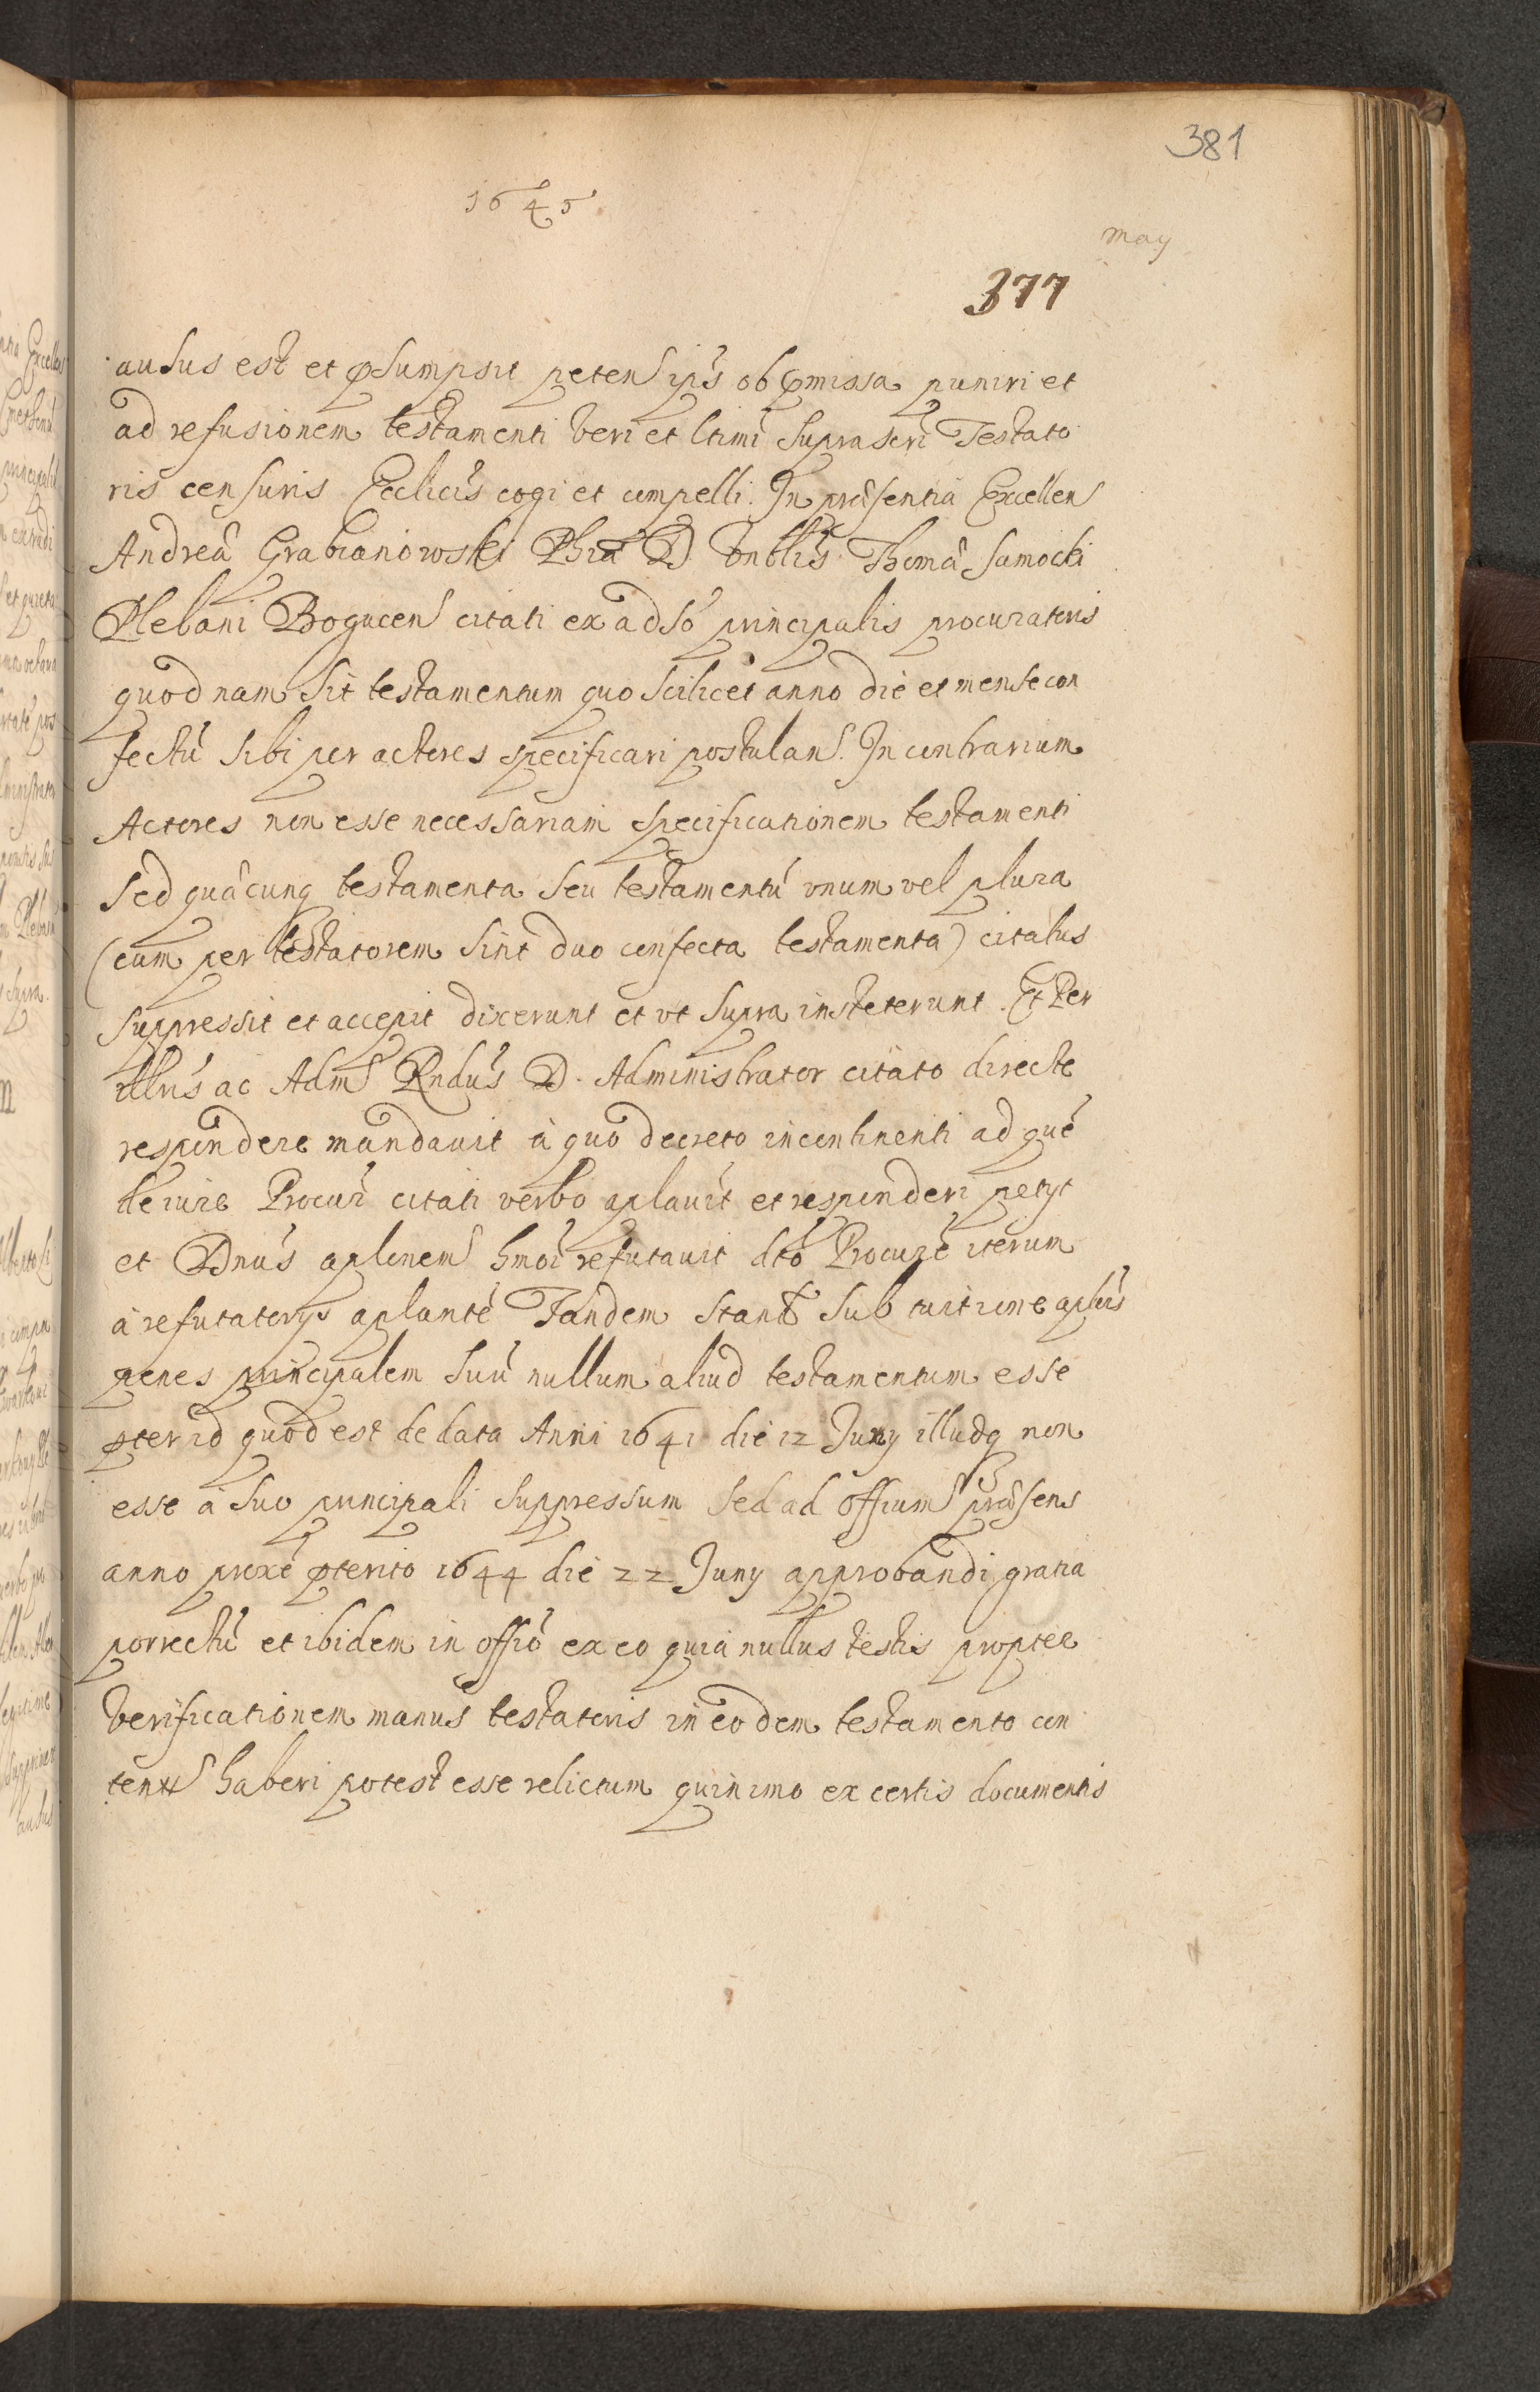 381
1645
May
377
ausus est et p̱sumpsit petens ip̃s ob p̱missa puniri et
ad refusionem testamenti veri et ltimi suprascri Testato
ris censuris Ecclicis cogi et compelli. In præsentia Excellens
Andreâ Grabianowski Phiæ D Honblis Thomâ Samocki
Plebani Bogucens citati ex adso principalis procuratoris
quodnam sit testamentum quo scilicet anno die et mense con
fectũ sibi per actores specificari postulans. In contrarium
Actores non esse necessariam specificationem testamenti
sed quæcunq testamenta seu testamentũ vnum vel plura
(cum per testatorem sint duo confecta testamenta) citatus
suppressit et accepit dixerunt et vt supra insteterunt. Et Per
illris ac Adms Rndus D. Administrator citato directe
respondere mandauit à quo decreto incontinenti ad quẽ
de iure Procur citati verbo aplauit et responderi petyt
et Dnus aplonems hmoi refutauit dto Procure iterum
à refutatorys aplante Tandem stans sub tuitione aplnis
penes principalem suũ nullum aliud testamentum esse
p̱ter id quod est de data Anni 1641 die 12 Juny illudq non
esse à suo principali suppressum sed ad offiums præsens
anno proxe p̱terito 1644 die 22 Juny approbandi gratia
porrectũ et ibidem in offio ex eo quia nullus testis propter
verificationem manus testatoris in eodem testamento con
tentæ haberi potest esse relictum quinimo ex certis documentis